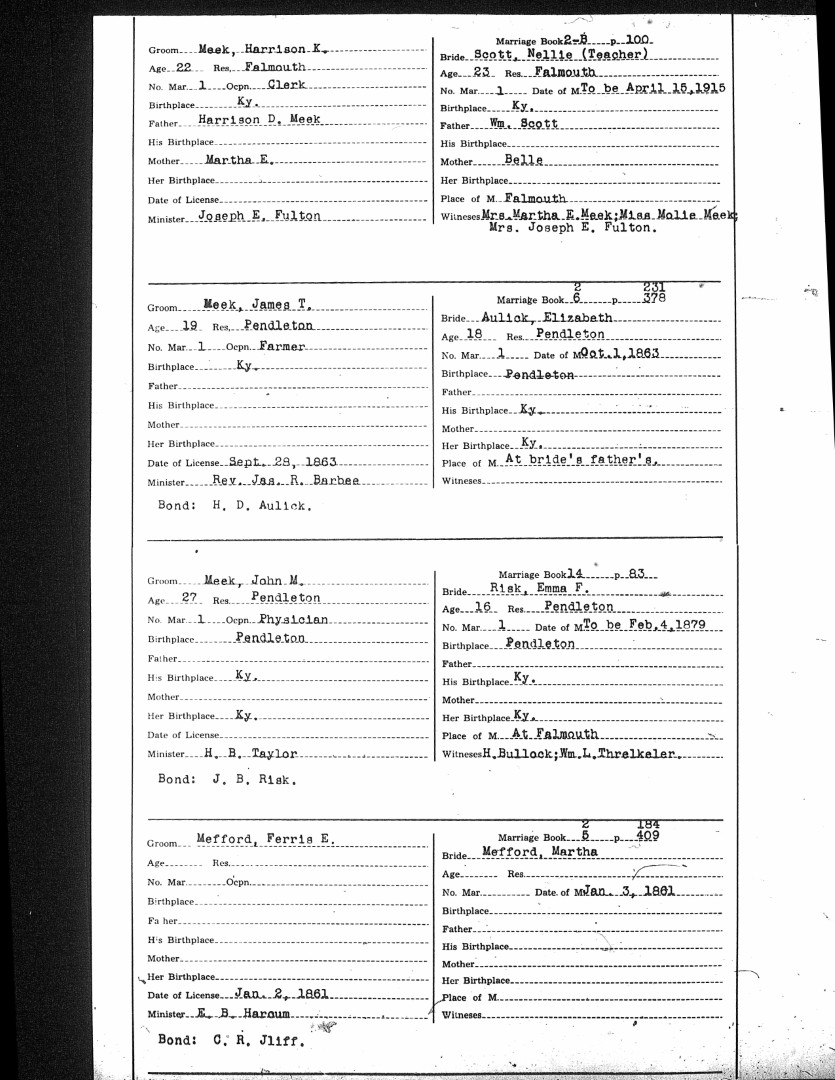 Marriage Book 2-B p. 100
Groom Meek, Harrison K.
Bride Scott, Nellie (Teacher)
Age 22 Res. Falmouth
Age 23 Res. Falmouth
No. Mar. 1 Ocpn. Clerk
No. Mar. 1 Date of M. To be April 15,1915
Birthplace Ky.
Birthplace Ky.
Father Harrison D. Meek
Father Wm. Scott
His Birthplace
His Birthplace
Mother Martha E.
Mother Belle
Her Birthplace
Her Birthplace
Date of License
Place of M. Falmouth
Minister Joseph E. Fulton
Witnesses Mrs.Martha E.Meek;Miss Molie Meek;
Mrs. Joseph E. Fulton.
2 231
Marriage Book 6 p. 378
Groom Meek, James T.
Bride Aulick, Elizabeth
Age 19 Res. Pendleton
Age 18 Res. Pendleton
No. Mar. 1 Ocpn. Farmer
No. Mar. 1 Date of M. Oct.1,1863
Birthplace Ky.
Birthplace Pendleton
Father
Father
His Birthplace
His Birthplace Ky.
Mother
Mother
Her Birthplace
Her Birthplace Ky.
Date of License Sept. 28, 1863
Place of M. At bride's father's.
Minister Rev. Jas. R. Barbee
Witnesses
Bond: H. D. Aulick.
Marriage Book 14 p. 83
Groom Meek, John M.
Bride Risk, Emma F.
Age 27 Res. Pendleton
Age 16 Res. Pendleton
No. Mar. 1 Ocpn. Physician
No. Mar. 1 Date of M. To be Feb.4,1879
Birthplace Pendleton
Birthplace Pendleton
Father
Father
His Birthplace Ky.
His Birthplace Ky.
Mother
Mother
Her Birthplace Ky.
Her Birthplace Ky.
Date of License
Place of M. At Falmouth
Minister H. B. Taylor
Witnesses H.Bullock;Wm.L.Threlkeler.
Bond: J. B. Risk.
2 184
Marriage Book 5 p. 409
Groom Mefford, Ferris E.
Bride Mefford, Martha
Age Res.
Age Res.
No. Mar. Ocpn.
No. Mar. Date of M. Jan. 3, 1861
Birthplace
Birthplace
Fa her
Father
His Birthplace
His Birthplace
Mother
Mother
Her Birthplace
Her Birthplace
Date of License Jan. 2, 1861
Place of M.
Minister E. B. Harcum
Witnesses
Bond: C. R. Jliff.